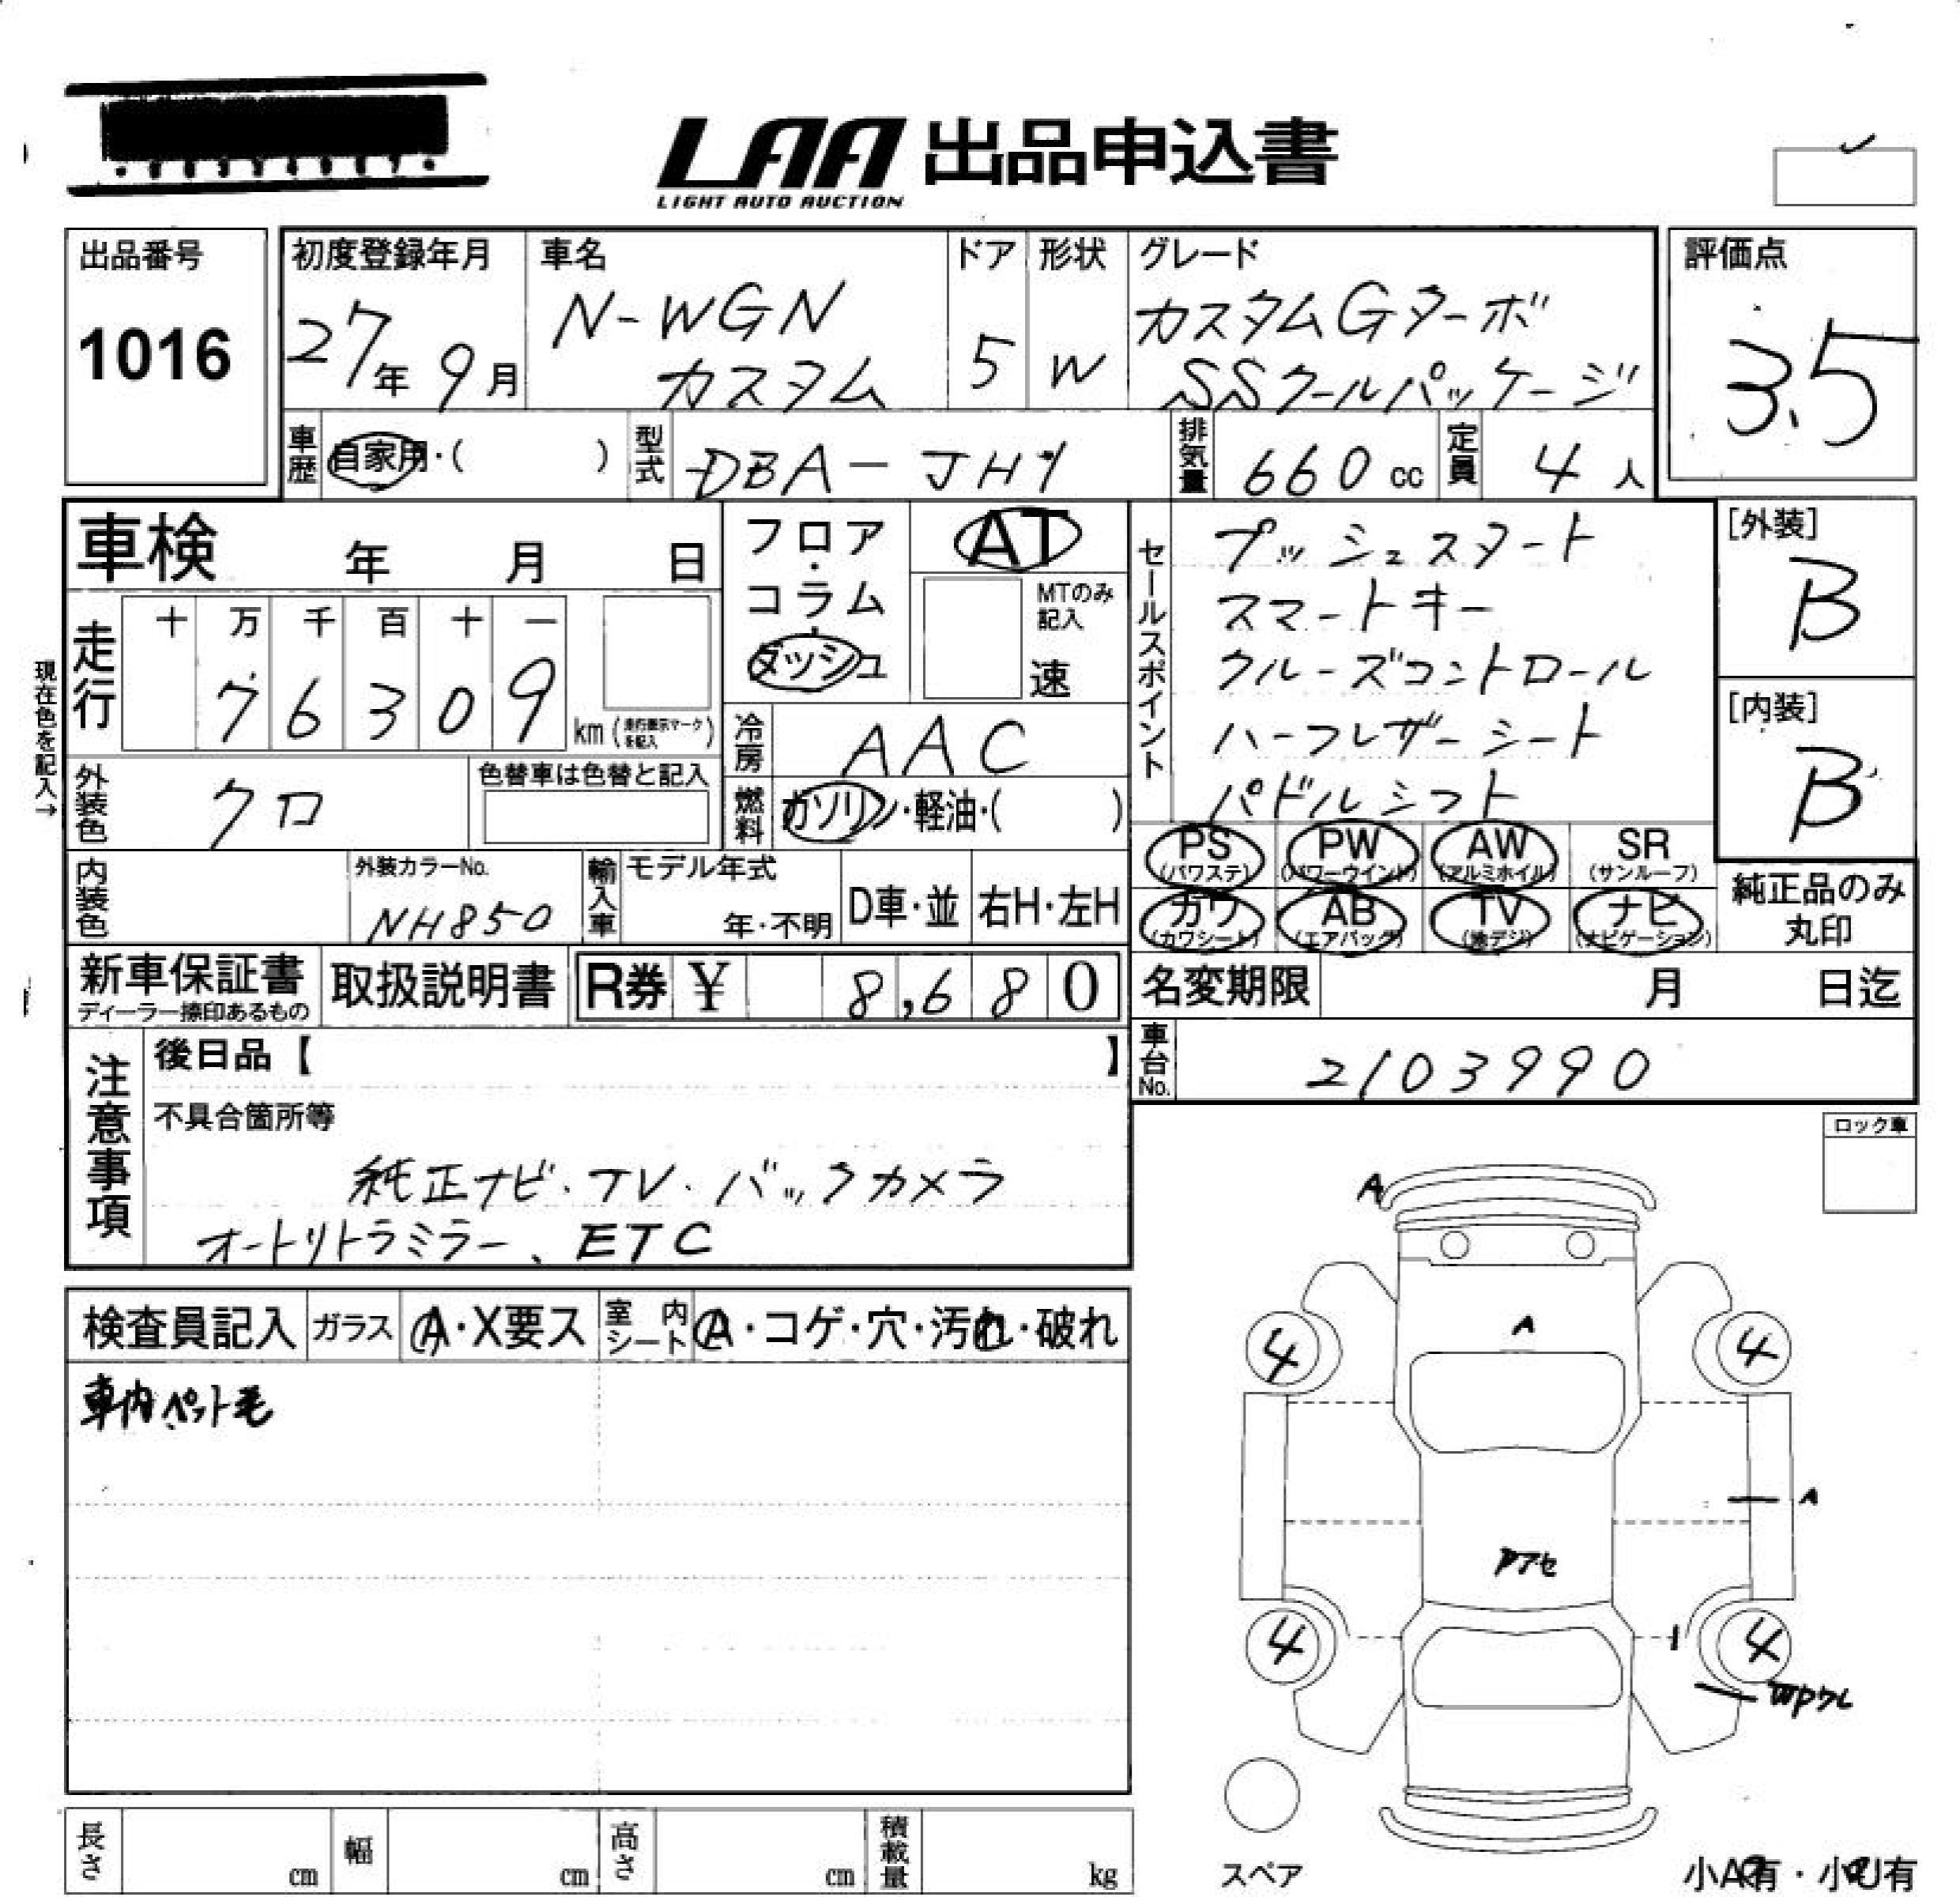 LAA 出品申込書
LIGHT AUTO AUCTION
出品番号
1016
初度登録年月
27年 9月
車名
N-WGN
カスタム
ドア
5
形状
W
グレード
カスタムGターボ
SSクールパッケージ
評価点
3.5
車歴
自家用・( )
型式
DBA-JH1
排気量
660 cc
定員
4 人
車検 年 月 日
フロア・
コラム・
ダッシュ
AT
MTのみ
記入
速
セールスポイント
プッシュスタート
スマートキー
クルーズコントロール
ハーフレザーシート
パドルシフト
[外装]
B
[内装]
B
現在色を記入→
走行
十 万 千 百 十 一
7 6 3 0 9
km (走行表示マークを記入)
冷房
AAC
外装色
クロ
色替車は色替と記入
燃料
ガソリン・軽油・( )
PS
(パワステ)
PW
(パワーウインド)
AW
(アルミホイル)
SR
(サンルーフ)
カワ
(カワシート)
AB
(エアバッグ)
TV
(地デジ)
ナビ
(ナビゲーション)
純正品のみ
丸印
内装色
外装カラーNo.
NH850
輸入車
モデル年式
年・不明
D車・並
右H・左H
新車保証書
ディーラー捺印あるもの
取扱説明書
R券 ¥ 8,680
名変期限 月 日迄
車台No.
2103990
注意事項
後日品【 】
不具合箇所等
純正ナビ・TV・バックカメラ
オートリトラミラー、ETC
ロック車
検査員記入
ガラス
A・X要ス
室内シート
A・コゲ・穴・汚れ・破れ
車内ペット毛
A
A
4
4
A
アセ
4
4
スペア
長さ cm
幅 cm
高さ cm
積載量 kg
小A有・小U有